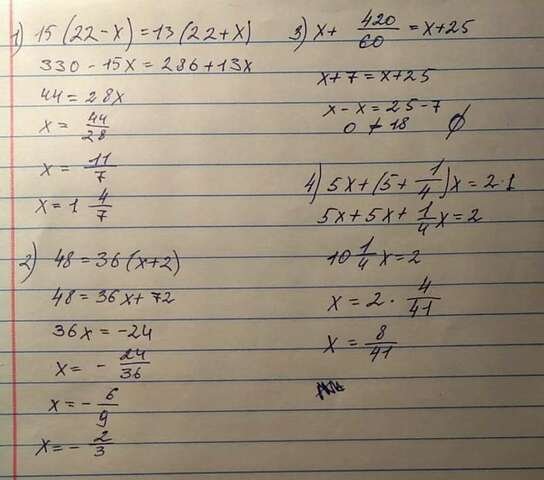 1) 15(22-x)=13(22+x)
330-15x=286+13x
44=28x
x=44/28
x=11/7
x=1 4/7
2) 48=36(x+2)
48=36x+72
36x=-24
x=-24/36
x=-6/9
x=-2/3
3) x+420/60=x+25
x+7=x+25
x-x=25-7
0≠18 ∅
4) 5x+(5+1/4)x=2·1
5x+5x+1/4x=2
10 1/4x=2
x=2·4/41
x=8/41